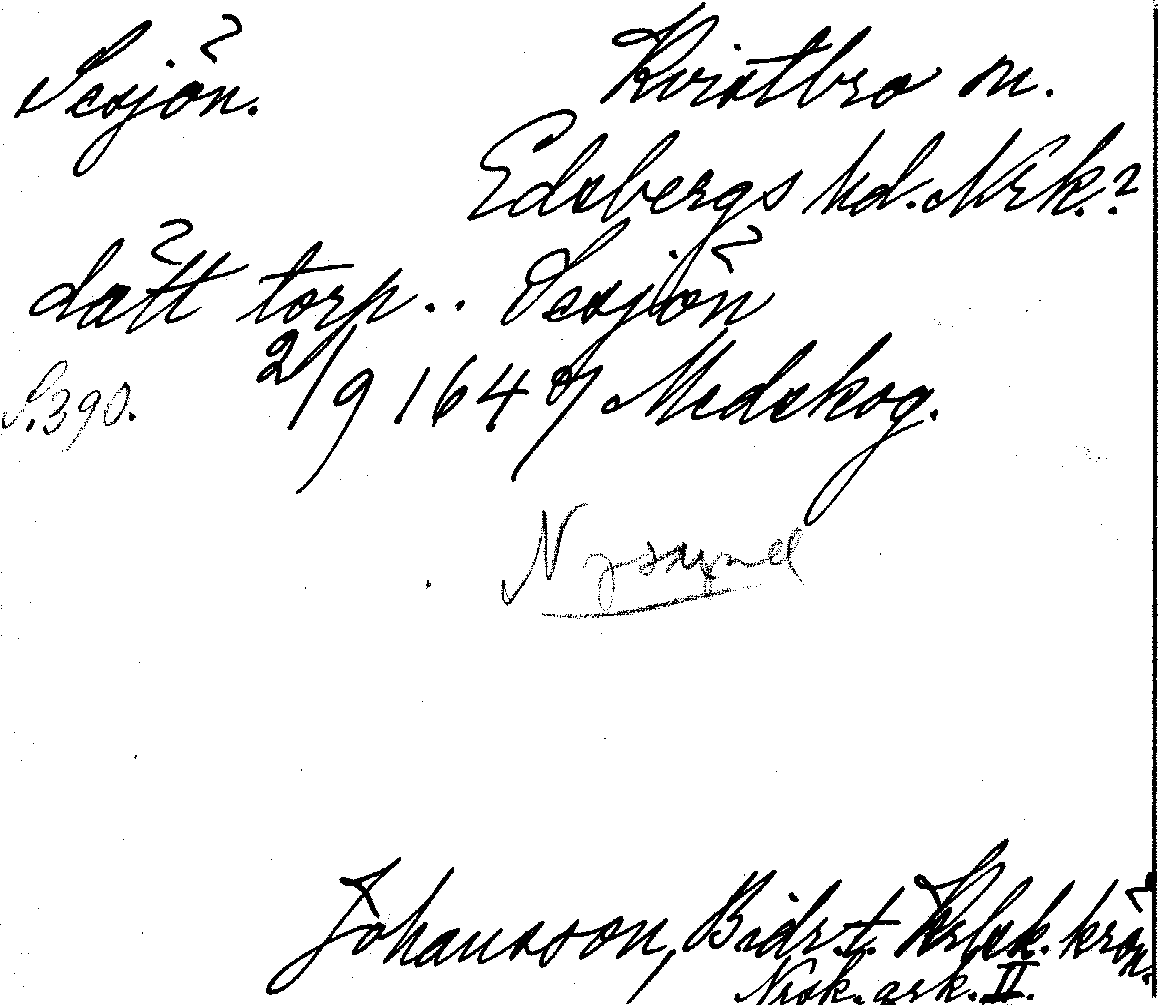 Sexjön. Kvistbro sn.
Edsbergs hd. Nrk.?
dått torp.. Sexjön
S.390. 2/9 1647 Medskog.
Nysund
Johansson, Bidr. t. Krlsk. krön.
Nrsk. ark. II.